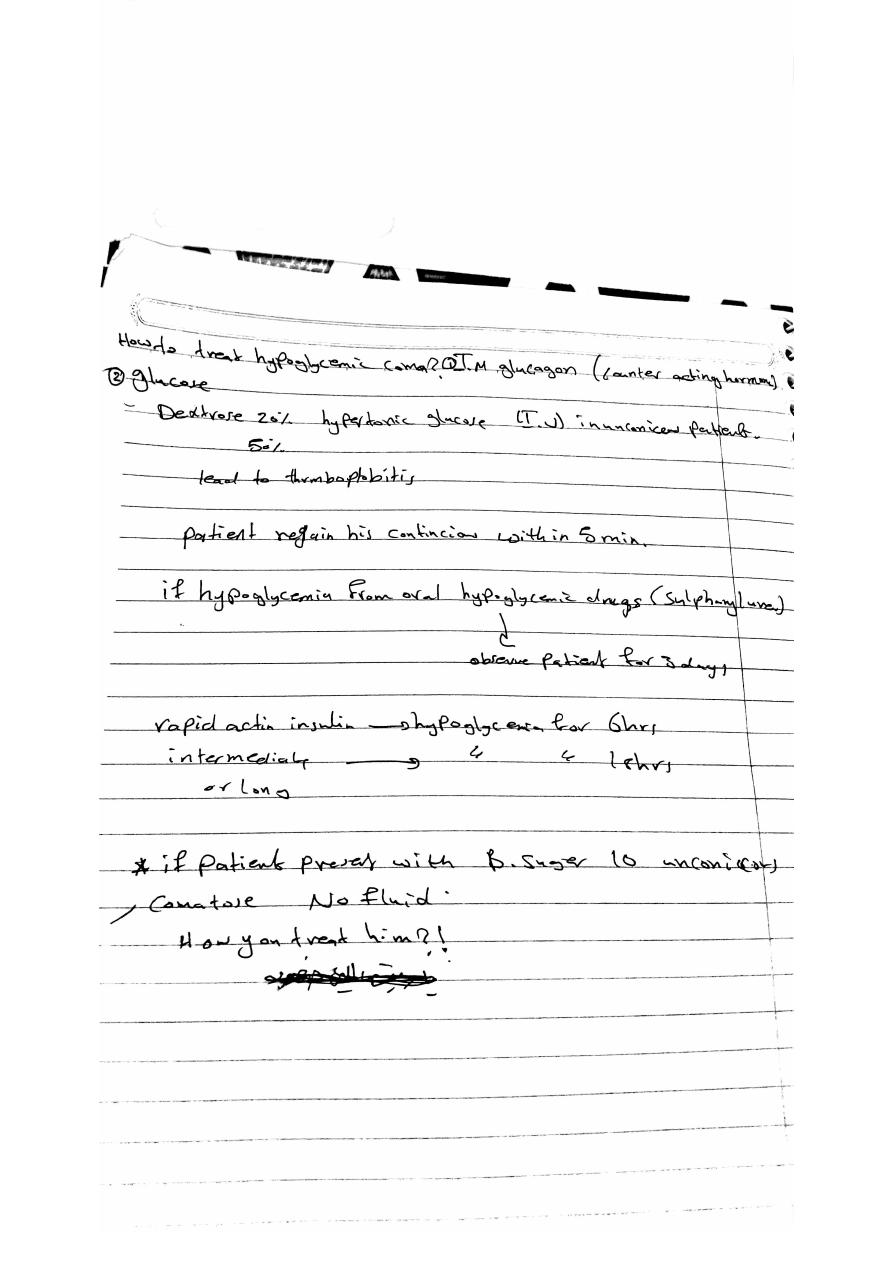 How do treat hypoglycemic coma? ① I.M glucagon (counter acting hormon)
② glucose
- Dextrose 20% hypertonic glucose (I.V) in unconicew patient.
50%
lead to thrmbophbitis
patient regain his contincion within 5 min.
if hypoglycemia from oral hypoglycemic drugs (sulphanylurea)
↓
observe patient for 3 days
rapid actin insulin → hypoglycemia for 6hrs
intermediate → " " 18hrs
or long
* if patient preset with B. suger 10 unconicors
, Comatose No fluid.
How you treat him?!